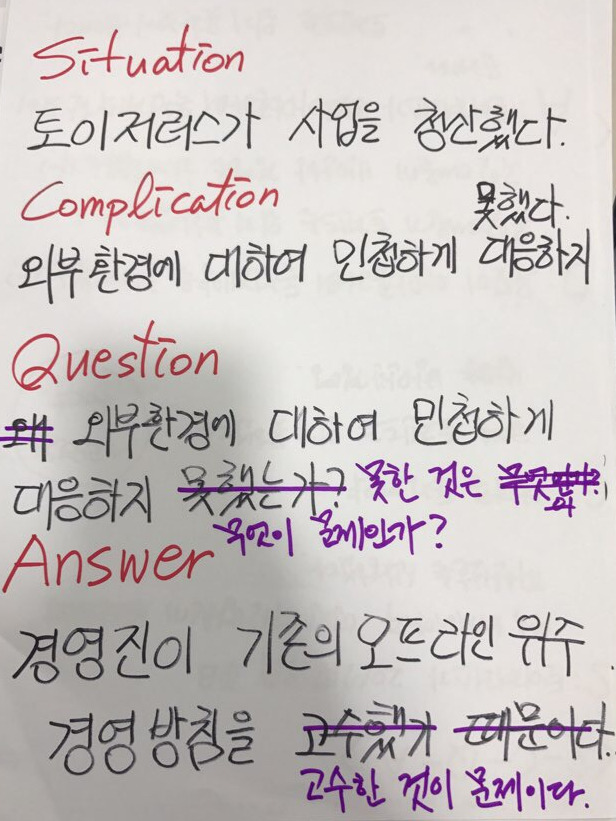 Situation
토이저러스가 사업을 청산했다.
Complication
못했다.
외부환경에 대하여 민첩하게 대응하지
Question
왜 외부환경에 대하여 민첩하게
대응하지 못했는가? 못한 것은
무엇이 문제인가?
Answer
경영진이 기존의 오프라인 위주
경영방침을 고수했기 때문이다.
고수한 것이 문제이다.